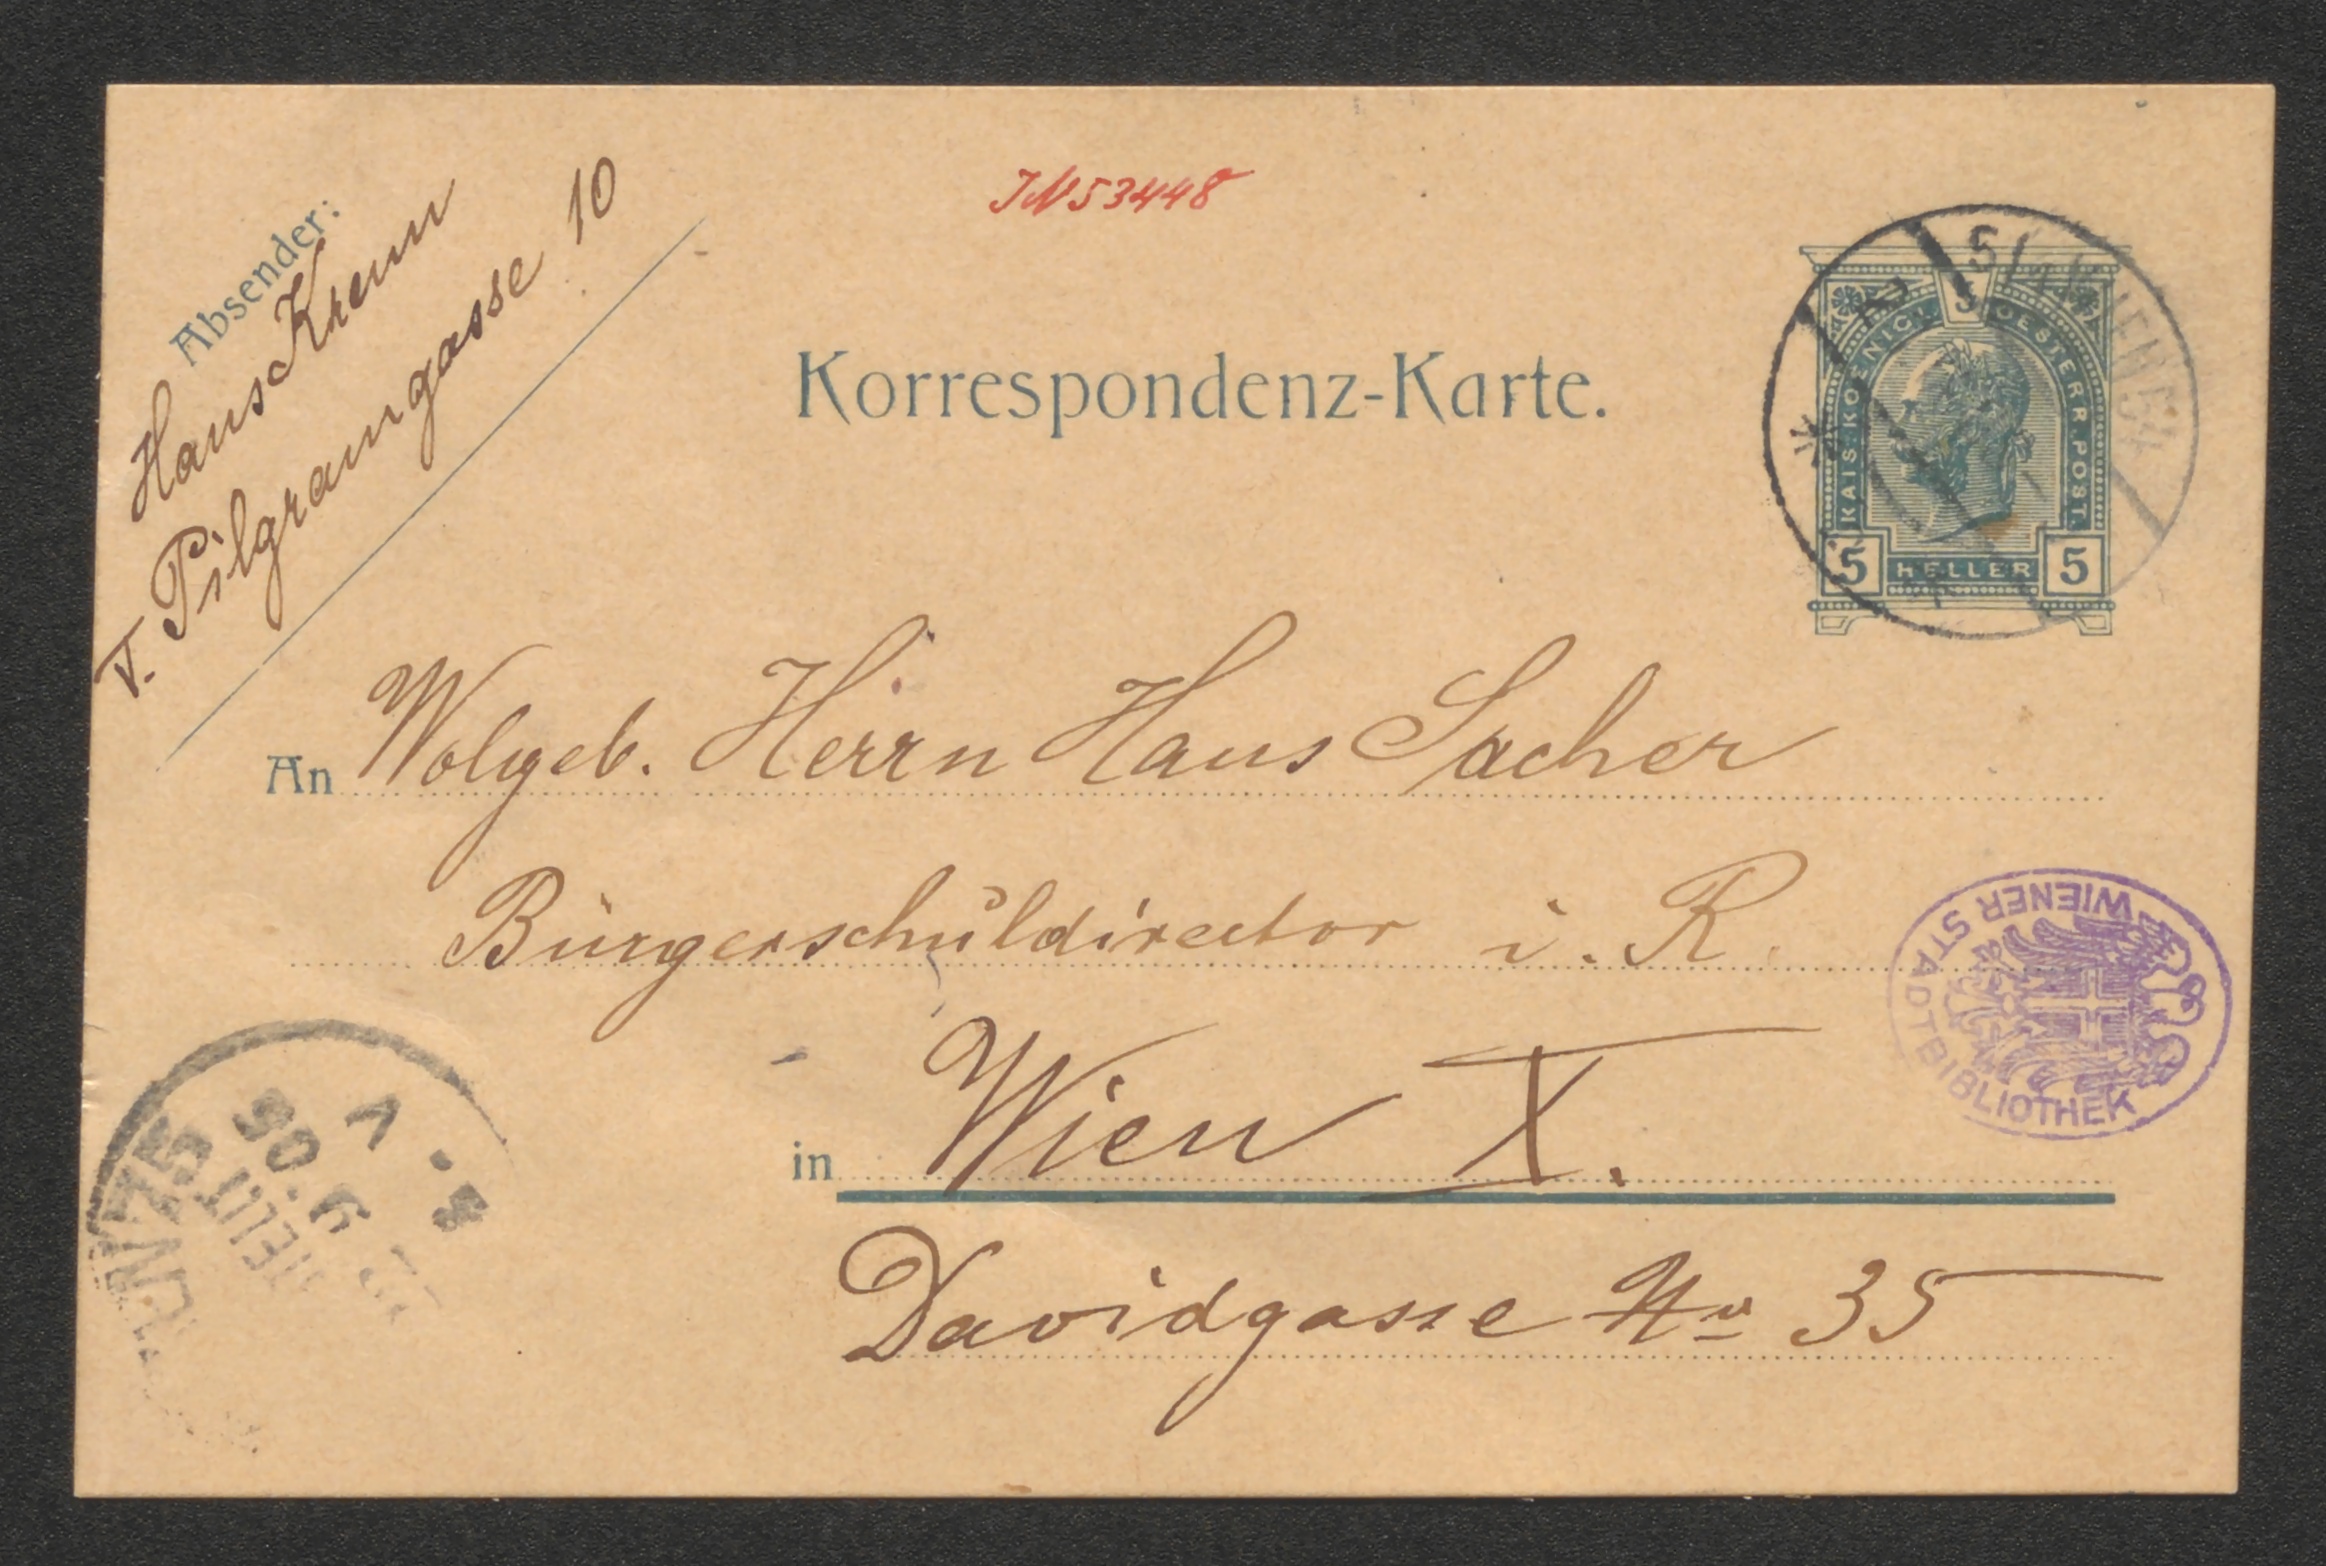 Absender:
Hans Krenn
V. Pilgramgasse 10
IN 53448
Korrespondenz-Karte.
5
KAIS. KOENIGL. OESTERR. POST.
5 HELLER 5
An Wolgeb. Herrn Hans Sacher
Bürgerschuldirector i. R.
in Wien X.
Davidgasse No 35
WIENER STADTBIBLIOTHEK